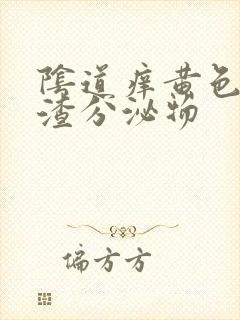 陰道痒黄色
渣分泌物
偏方方